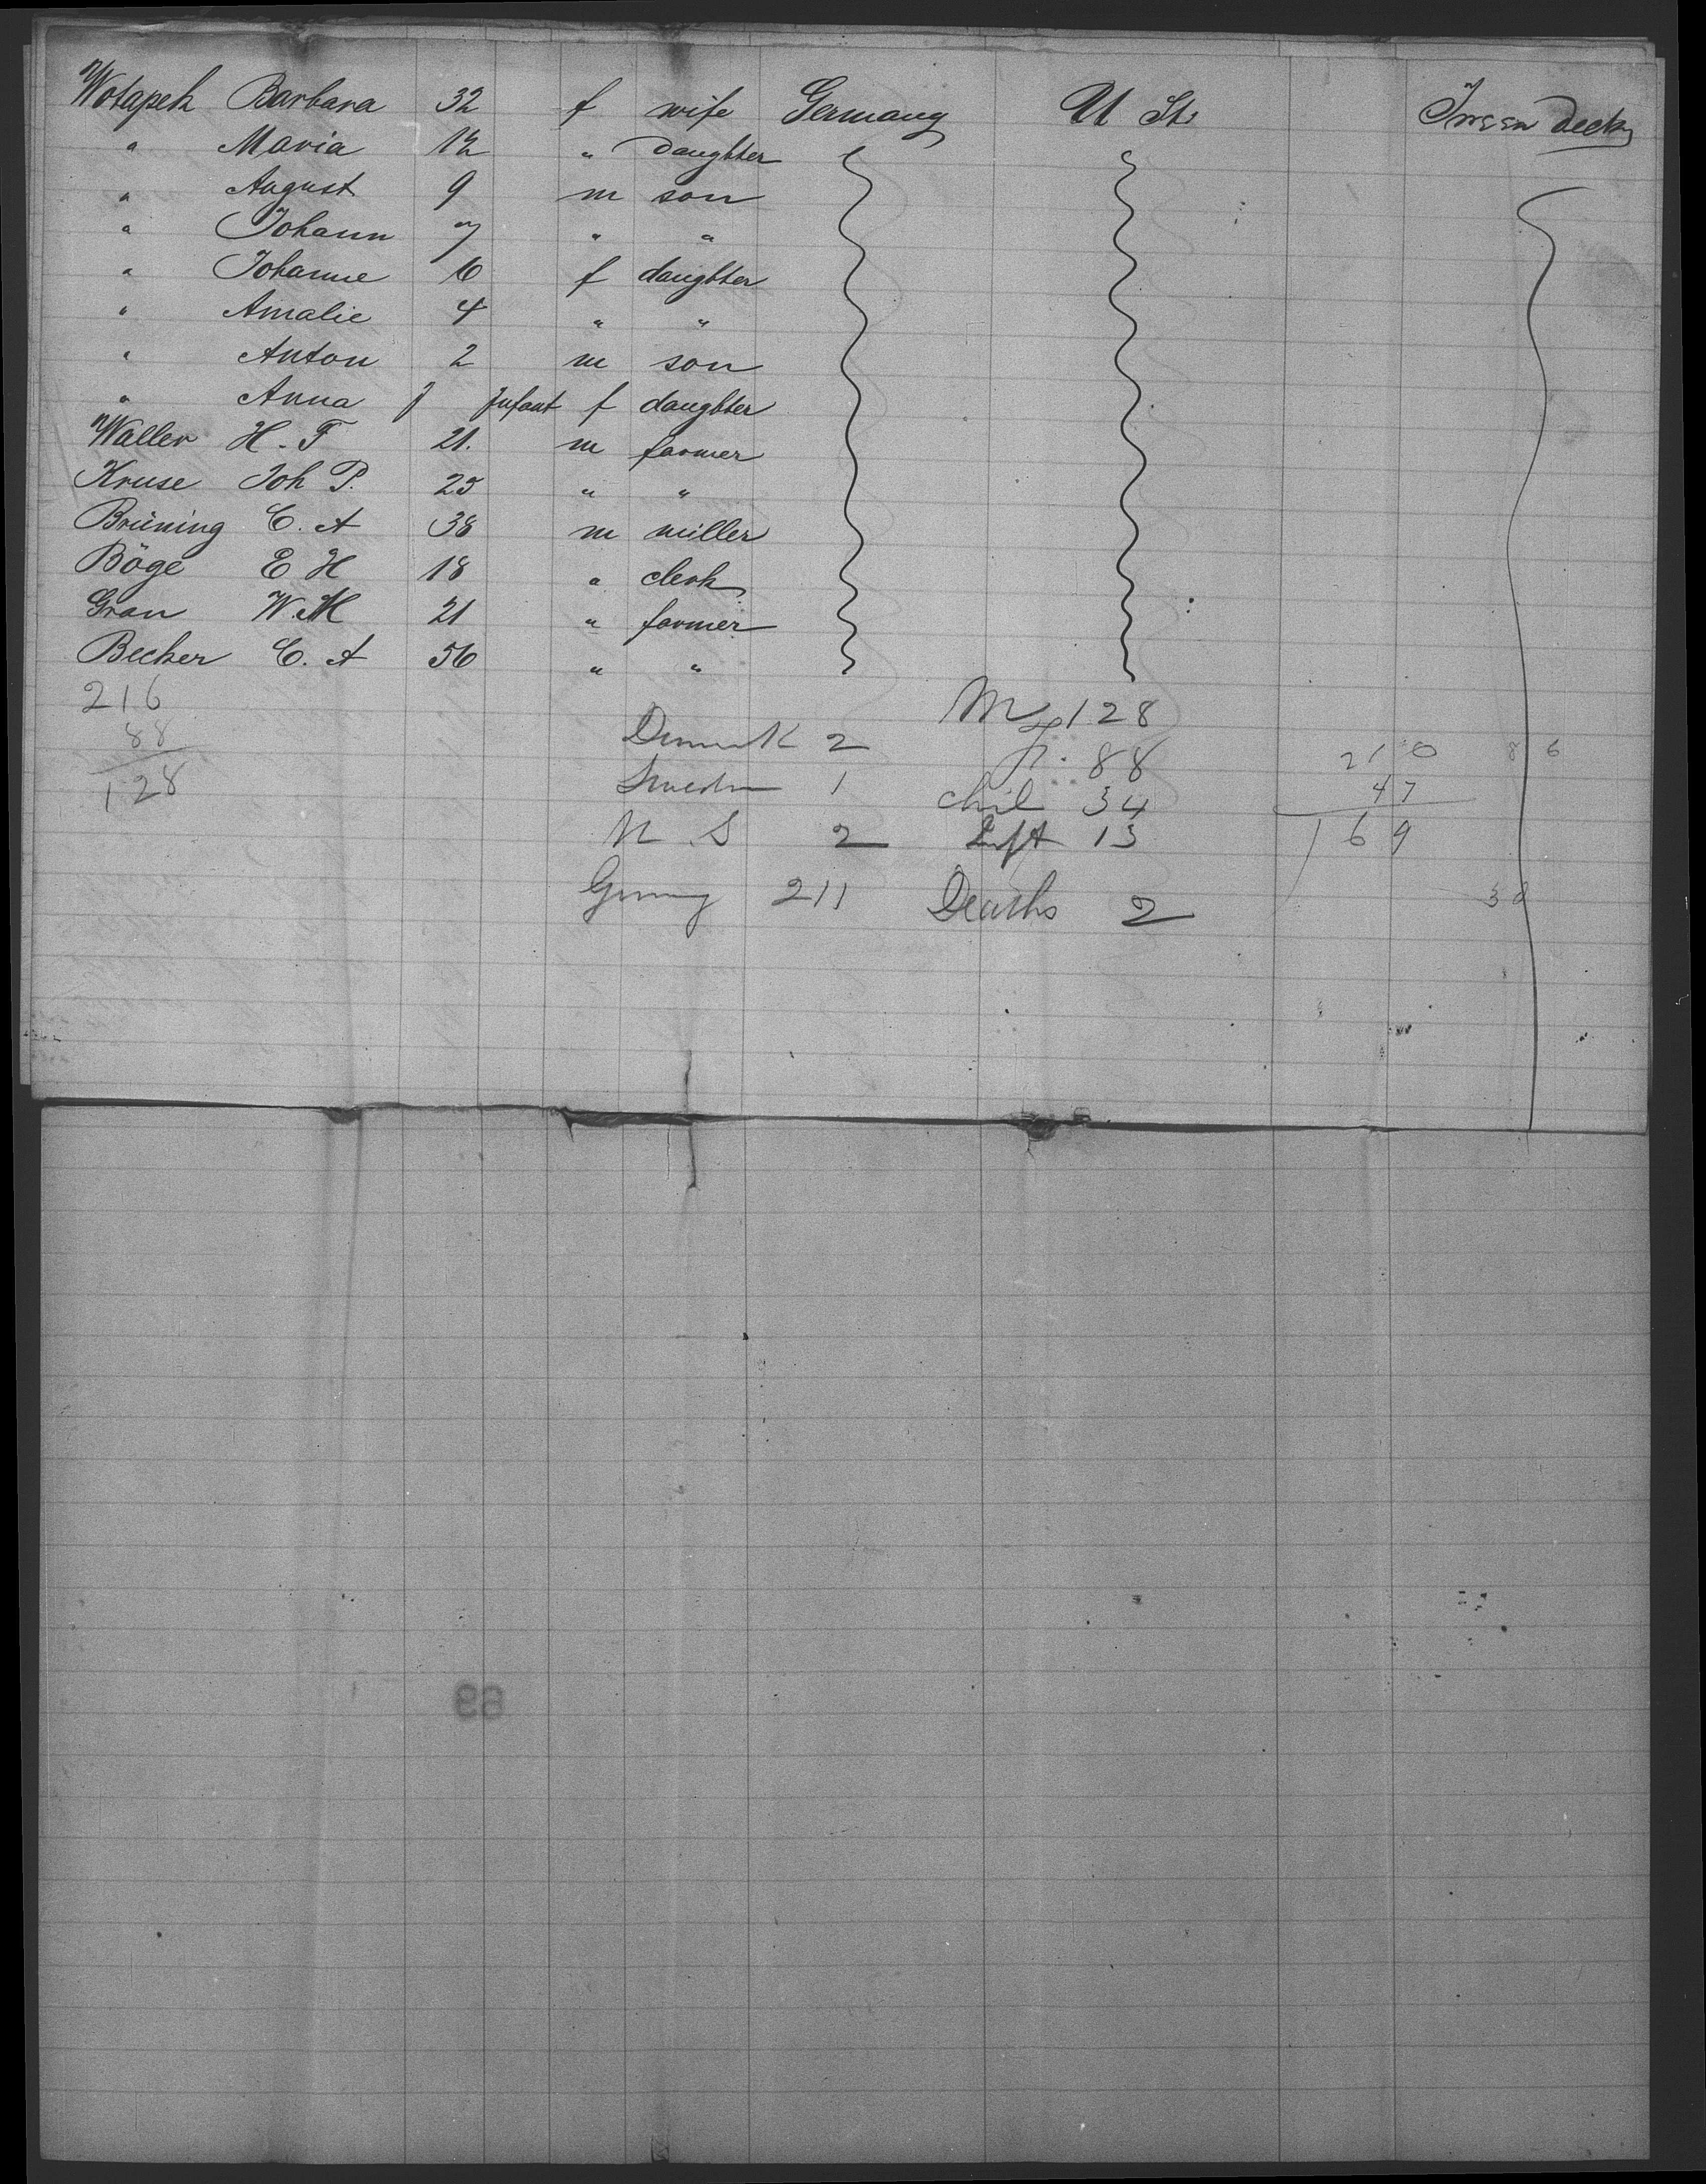 Wotapek Barbara 32 f wife Germany U St.
" Maria 12 " daughter
" August 9 m son
" Johann 7 " "
" Johanne 6 f daughter
" Amalie 4 " "
" Anton 2 m son
" Anna Infant f daughter
Waller H. F 21. m farmer
Kruse Joh P. 25 " "
Brüning C. A 38 m miller
Böge E H 18 " clerk
Gran W. M 21 " farmer
Becker C. A 56 " "
216 M 128
88 Denmark 2 f. 88 210 86
128 Sweden 1 chil 34 47
N S 2 Inft 13 169
Germy 211 Deaths 2